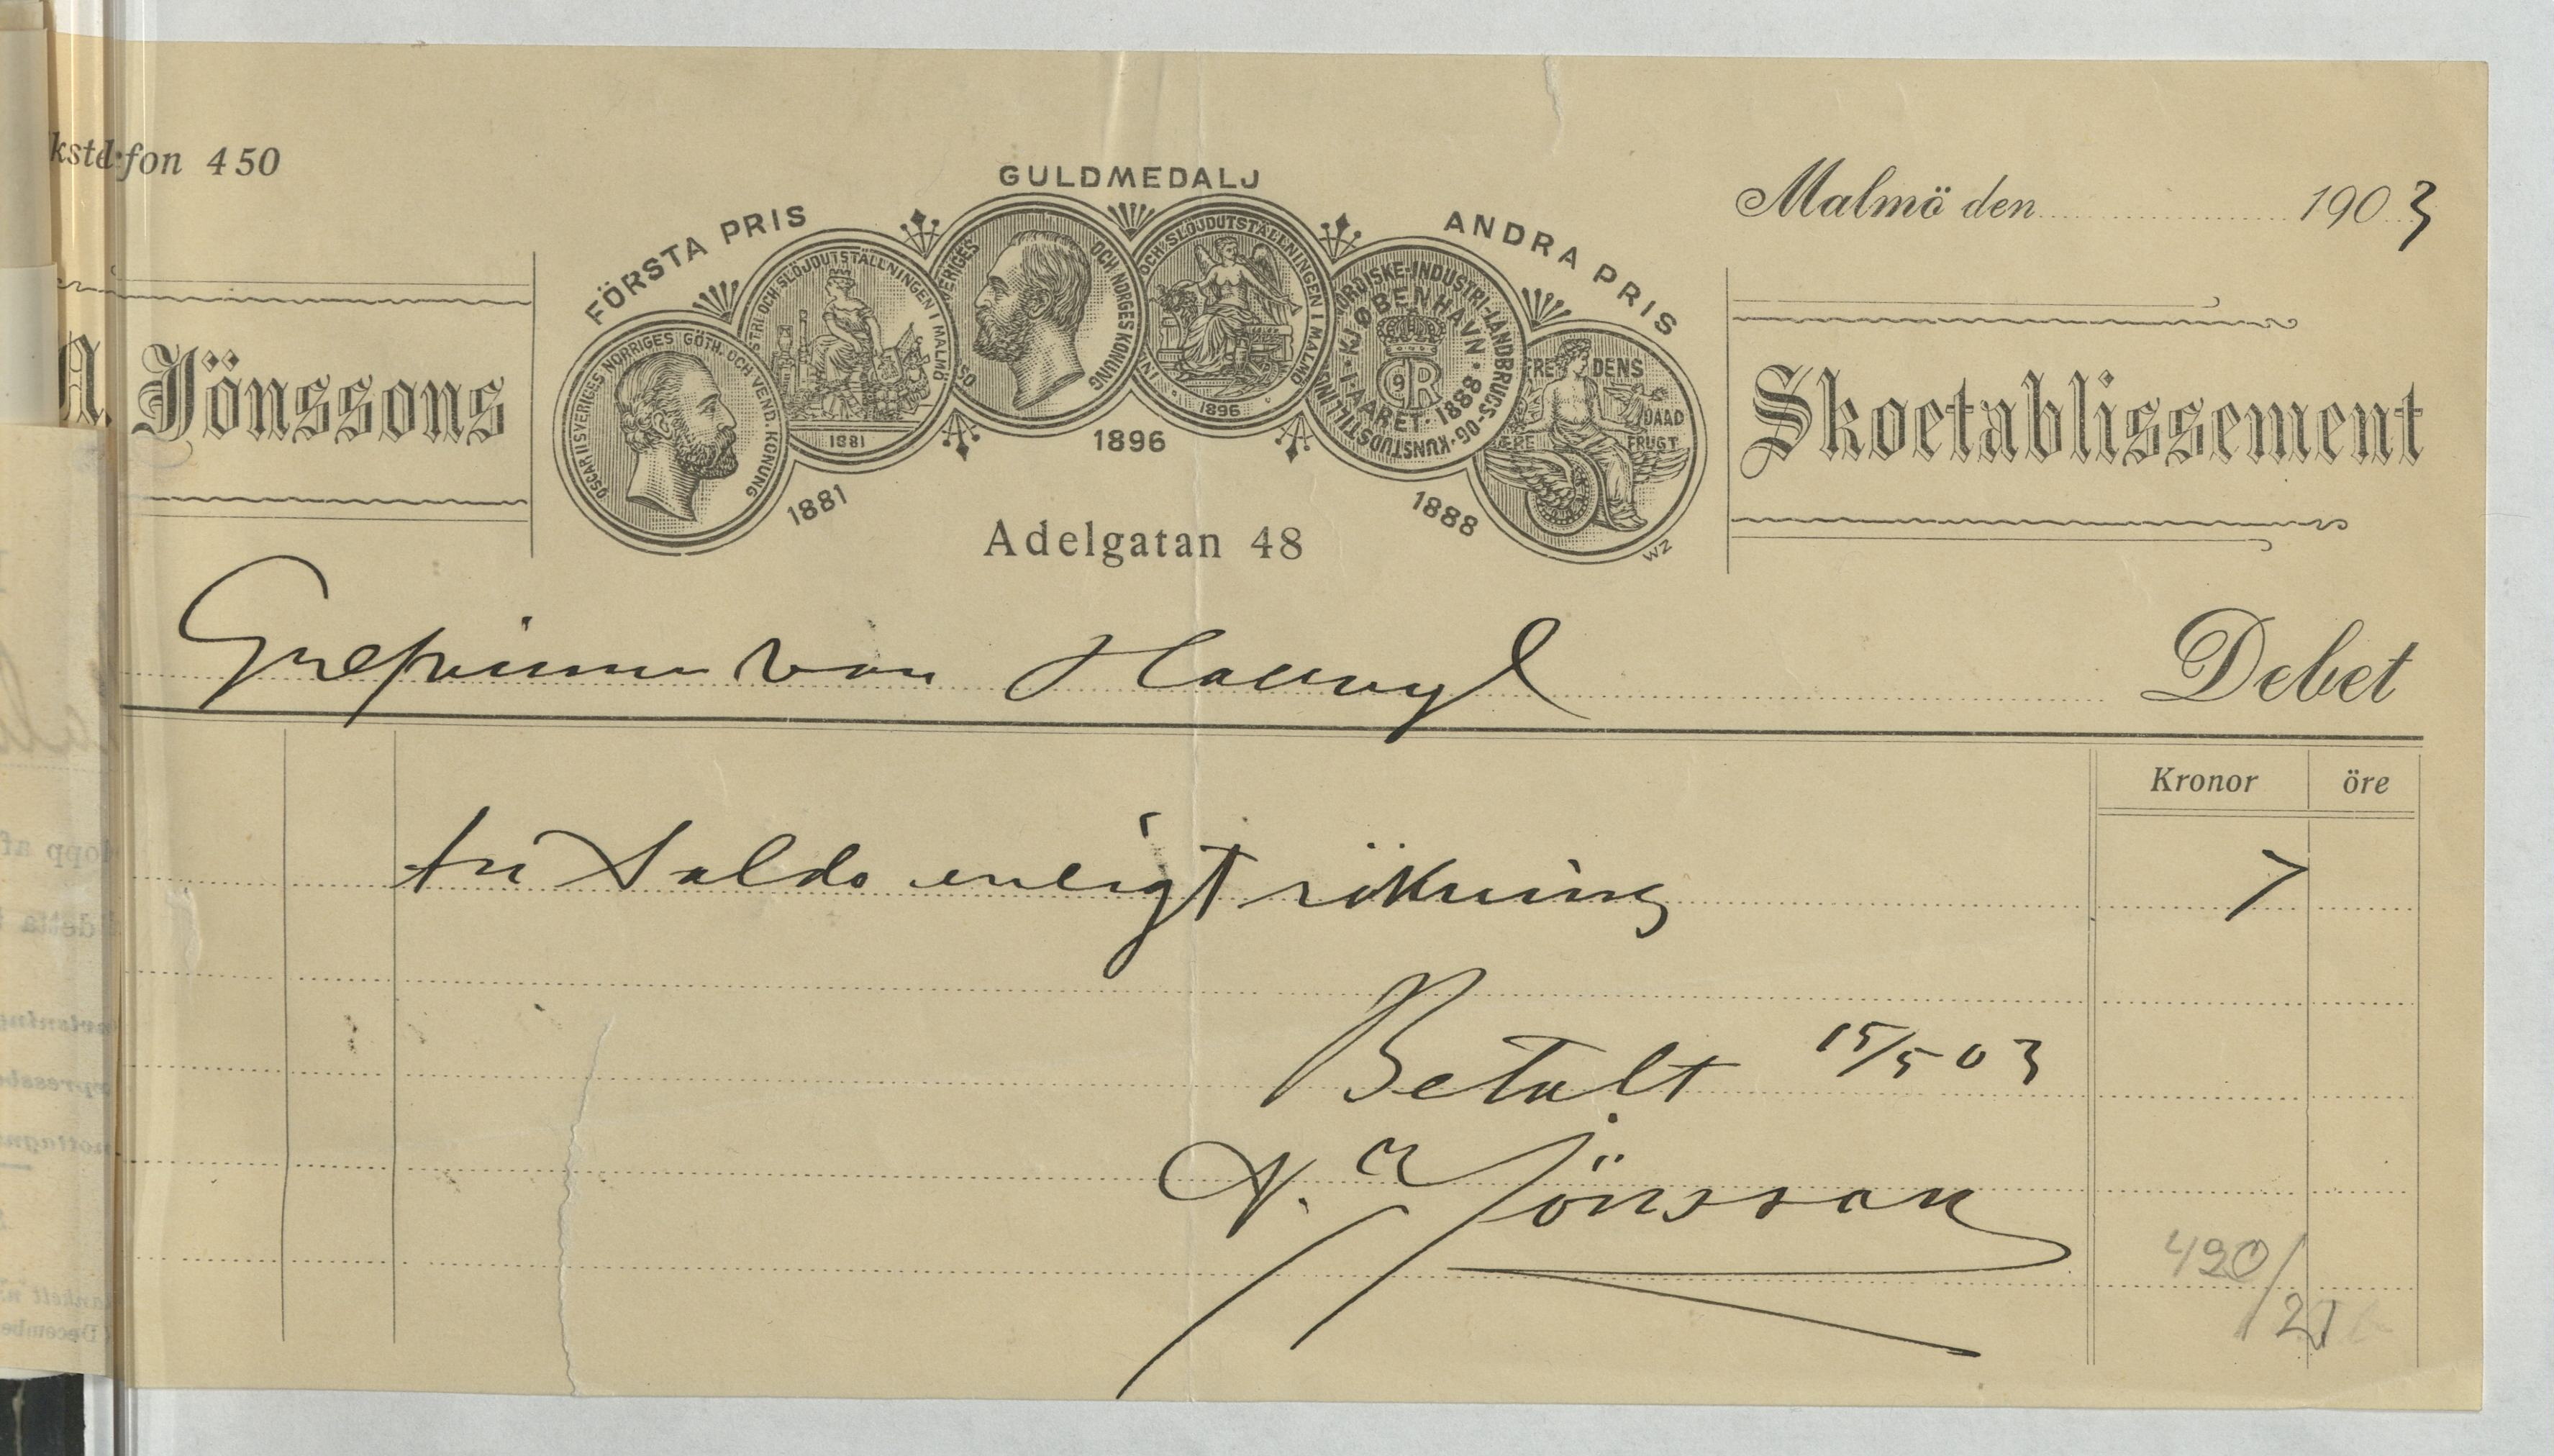 kstelefon 450
Malmö den 1903
FÖRSTA PRIS
GULDMEDALJ
ANDRA PRIS
A. Jönssons
OSCAR II SVERIGES NORRIGES GÖTH. OCH VEND. KONUNG
STRI OCH SLÖJDUTSTÄLLNINGEN I MALMÖ
1881
SVERIGES OCH NORGES KONUNG
OCH SLÖJDUTSTÄLLNINGEN I MALMÖ
1896
NORDISKE-INDUSTRI-LANDBRUGS-OG-KUNSTUDSTILLING
KJØBENHAVN
I AARET 1888
C9R
FREDENS
DAAD
ÆRE
FRUGT
Skoetablissement
1881
1896
1888
WZ
Adelgatan 48
Grefvinnan von Hallwyl
Debet
Kronor öre
Saldo enligt räkning 7
Betalt 15/5 03
A. Jönsson
420/